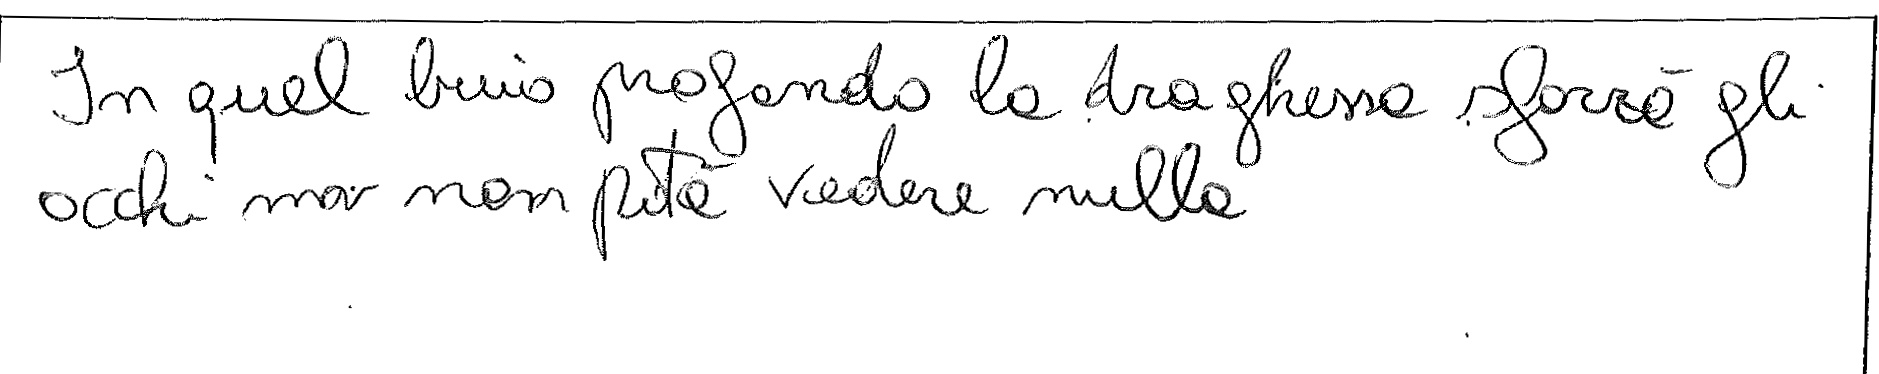 In quel buio profondo la draghessa sforzò gli
occhi ma non potà vedere nulla